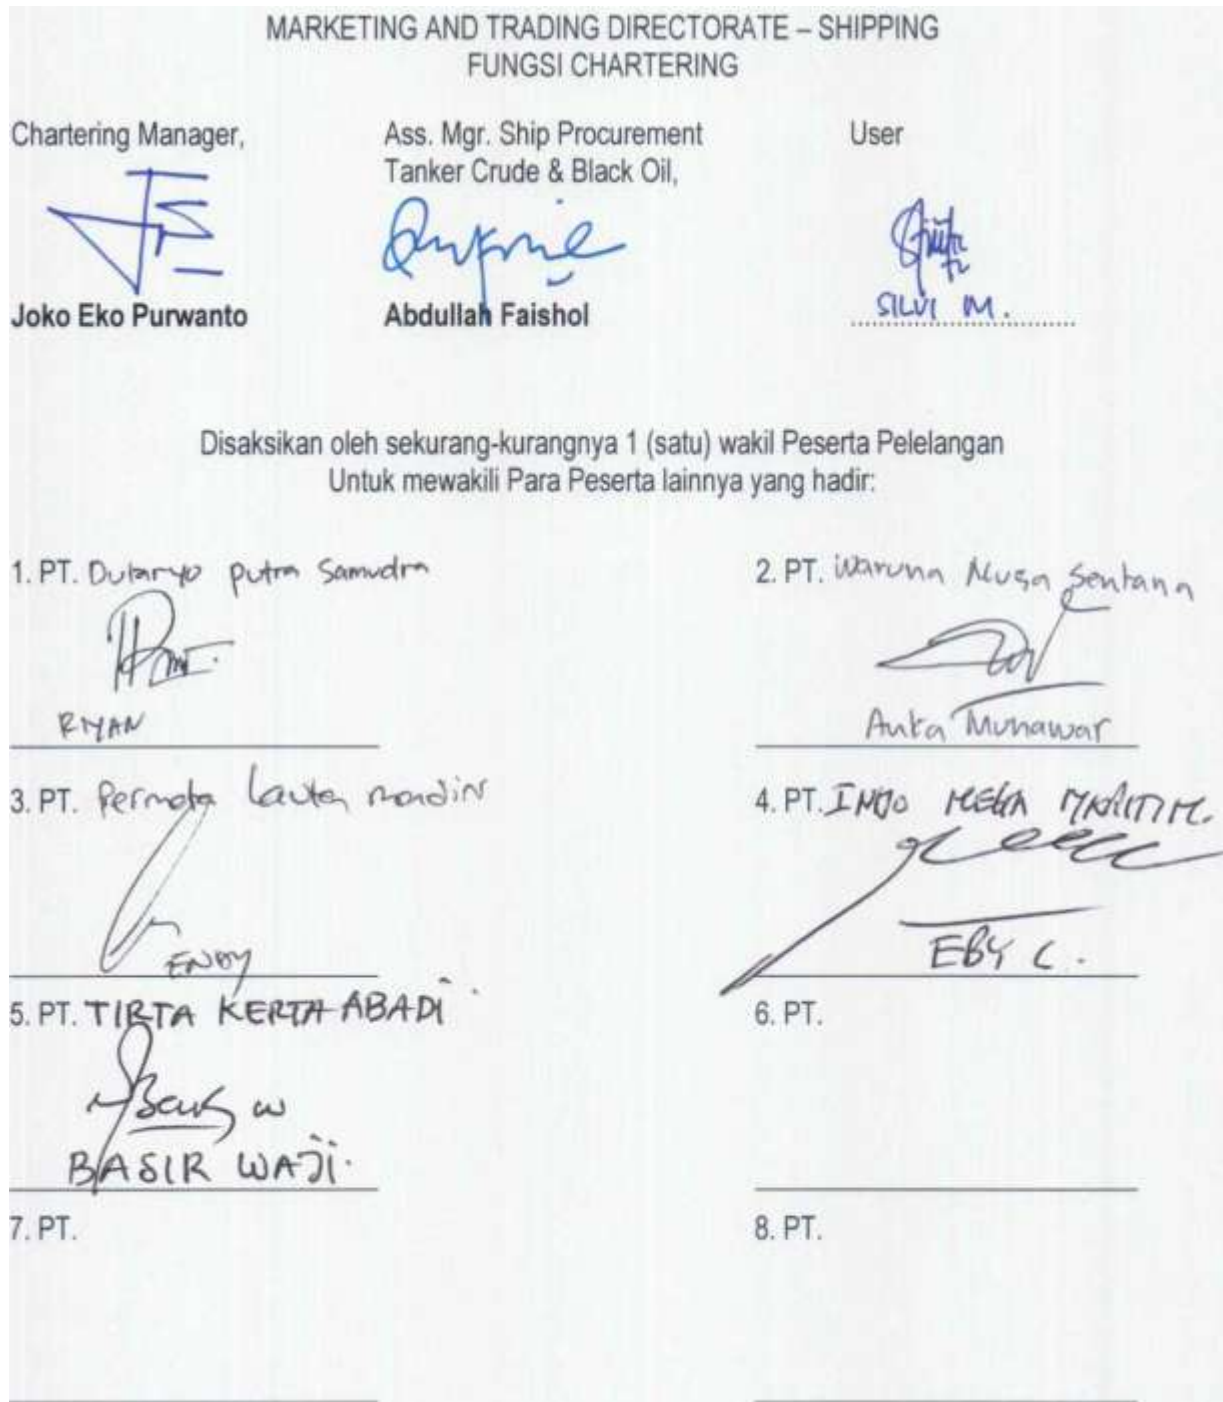 MARKETING AND TRADING DIRECTORATE – SHIPPING
FUNGSI CHARTERING
Chartering Manager,
Ass. Mgr. Ship Procurement
Tanker Crude & Black Oil,
User
Joko Eko Purwanto
Abdullah Faishol
SILVI M.
Disaksikan oleh sekurang-kurangnya 1 (satu) wakil Peserta Pelelangan
Untuk mewakili Para Peserta lainnya yang hadir:
1. PT. putra Samudra
RIYAN
2. PT. Waruna Nusa Sentana
Anta Munawar
3. PT. Permata
ENDY
4. PT. INDO MEGA MARITIM.
EBY C.
5. PT. TIRTA KERTA ABADI
BASIR WAJI.
6. PT.
7. PT.
8. PT.